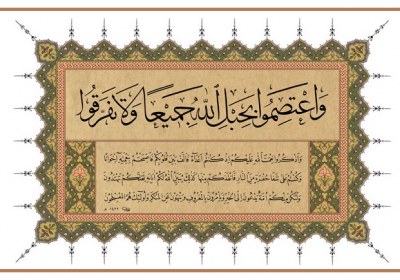 وَاعْتَصِمُوا بِحَبْلِ اللَّهِ جَمِيعًا وَلَا تَفَرَّقُوا
واذكروا نعمت الله عليكم إذ كنتم أعداء فألف بين قلوبكم فأصبحتم بنعمته إخوانا
وكنتم على شفا حفرة من النار فأنقذكم منها كذلك يبين الله لكم آياته لعلكم تهتدون
ولتكن منكم أمة يدعون إلى الخير ويأمرون بالمعروف وينهون عن المنكر وأولئك هم المفلحون